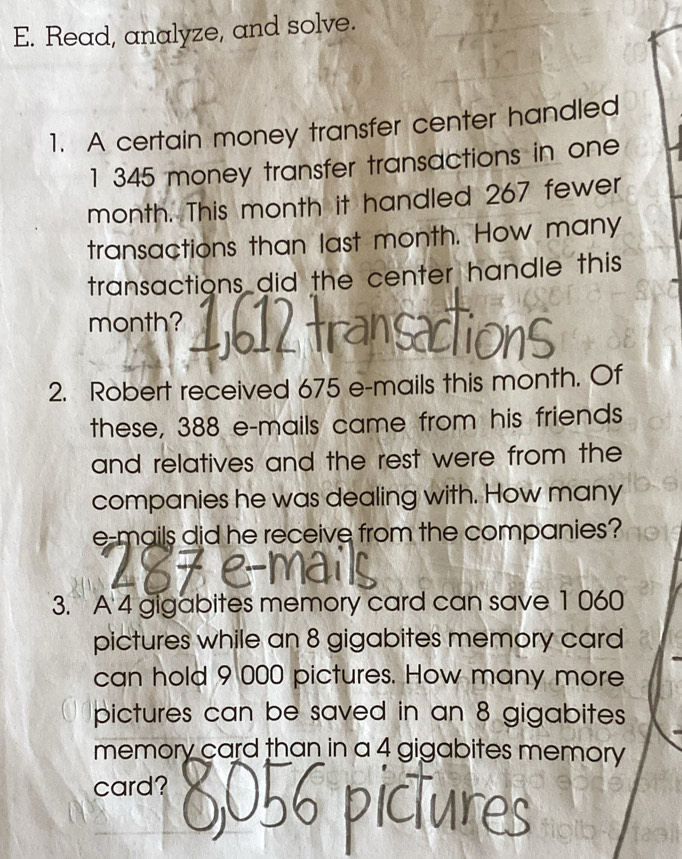 E. Read, analyze, and solve.
1. A certain money transfer center handled
1 345 money transfer transactions in one
month. This month it handled 267 fewer
transactions than last month. How many
transactions did the center handle this
month? 1,612 transactions
2. Robert received 675 e-mails this month. Of
these, 388 e-mails came from his friends
and relatives and the rest were from the
companies he was dealing with. How many
e-mails did he receive from the companies?
287 e-mails
3. A 4 gigabites memory card can save 1 060
pictures while an 8 gigabites memory card
can hold 9 000 pictures. How many more
pictures can be saved in an 8 gigabites
memory card than in a 4 gigabites memory
card? 8,056 pictures